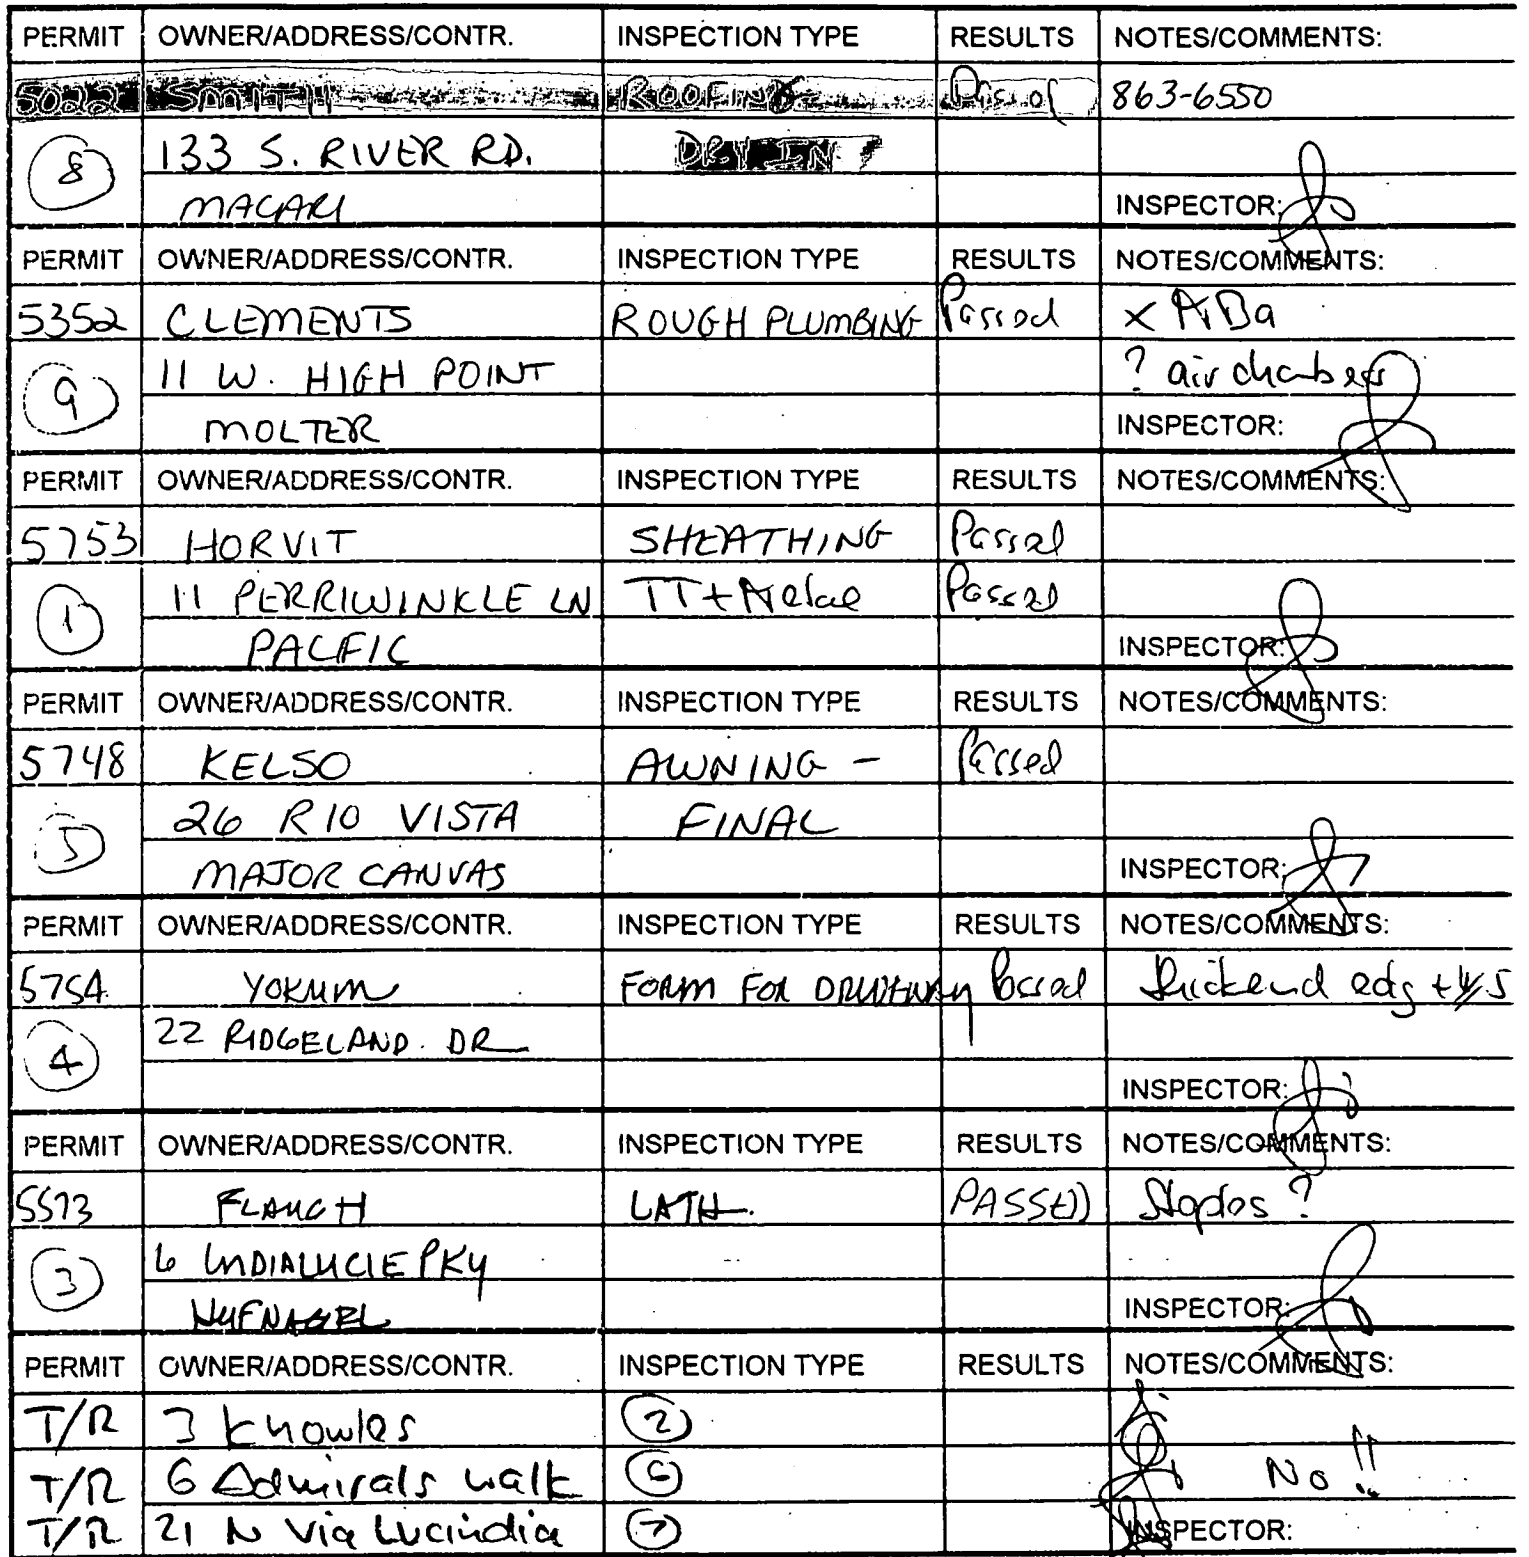 PERMIT OWNER/ADDRESS/CONTR. INSPECTION TYPE RESULTS NOTES/COMMENTS:
5022 SMITH ROOFING Passed 863-6550
8 133 S. RIVER RD. DRY IN
MACARI INSPECTOR:
PERMIT OWNER/ADDRESS/CONTR. INSPECTION TYPE RESULTS NOTES/COMMENTS:
5352 CLEMENTS ROUGH PLUMBING Passed
9 11 W. HIGH POINT ? air chambers
MOLTER INSPECTOR:
PERMIT OWNER/ADDRESS/CONTR. INSPECTION TYPE RESULTS NOTES/COMMENTS:
5753 HORVIT SHEATHING Passed
1 11 PERRIWINKLE LN TT+ Passed
PACFIC INSPECTOR:
PERMIT OWNER/ADDRESS/CONTR. INSPECTION TYPE RESULTS NOTES/COMMENTS:
5748 KELSO AWNING - Passed
5 26 RIO VISTA FINAL
MAJOR CANVAS INSPECTOR:
PERMIT OWNER/ADDRESS/CONTR. INSPECTION TYPE RESULTS NOTES/COMMENTS:
5754 YOKUM FORM FOR DRIVEWAY Passed
4 22 RIDGELAND DR
INSPECTOR:
PERMIT OWNER/ADDRESS/CONTR. INSPECTION TYPE RESULTS NOTES/COMMENTS:
5573 FLAUGH LATH. PASSED
3 6 INDIALUCIE PKY
HUFNAGEL INSPECTOR:
PERMIT OWNER/ADDRESS/CONTR. INSPECTION TYPE RESULTS NOTES/COMMENTS:
T/R 3 Knowles 2
T/R 6 Admirals walk 6 No!!
T/R 21 N Via Lucindia 7 INSPECTOR: